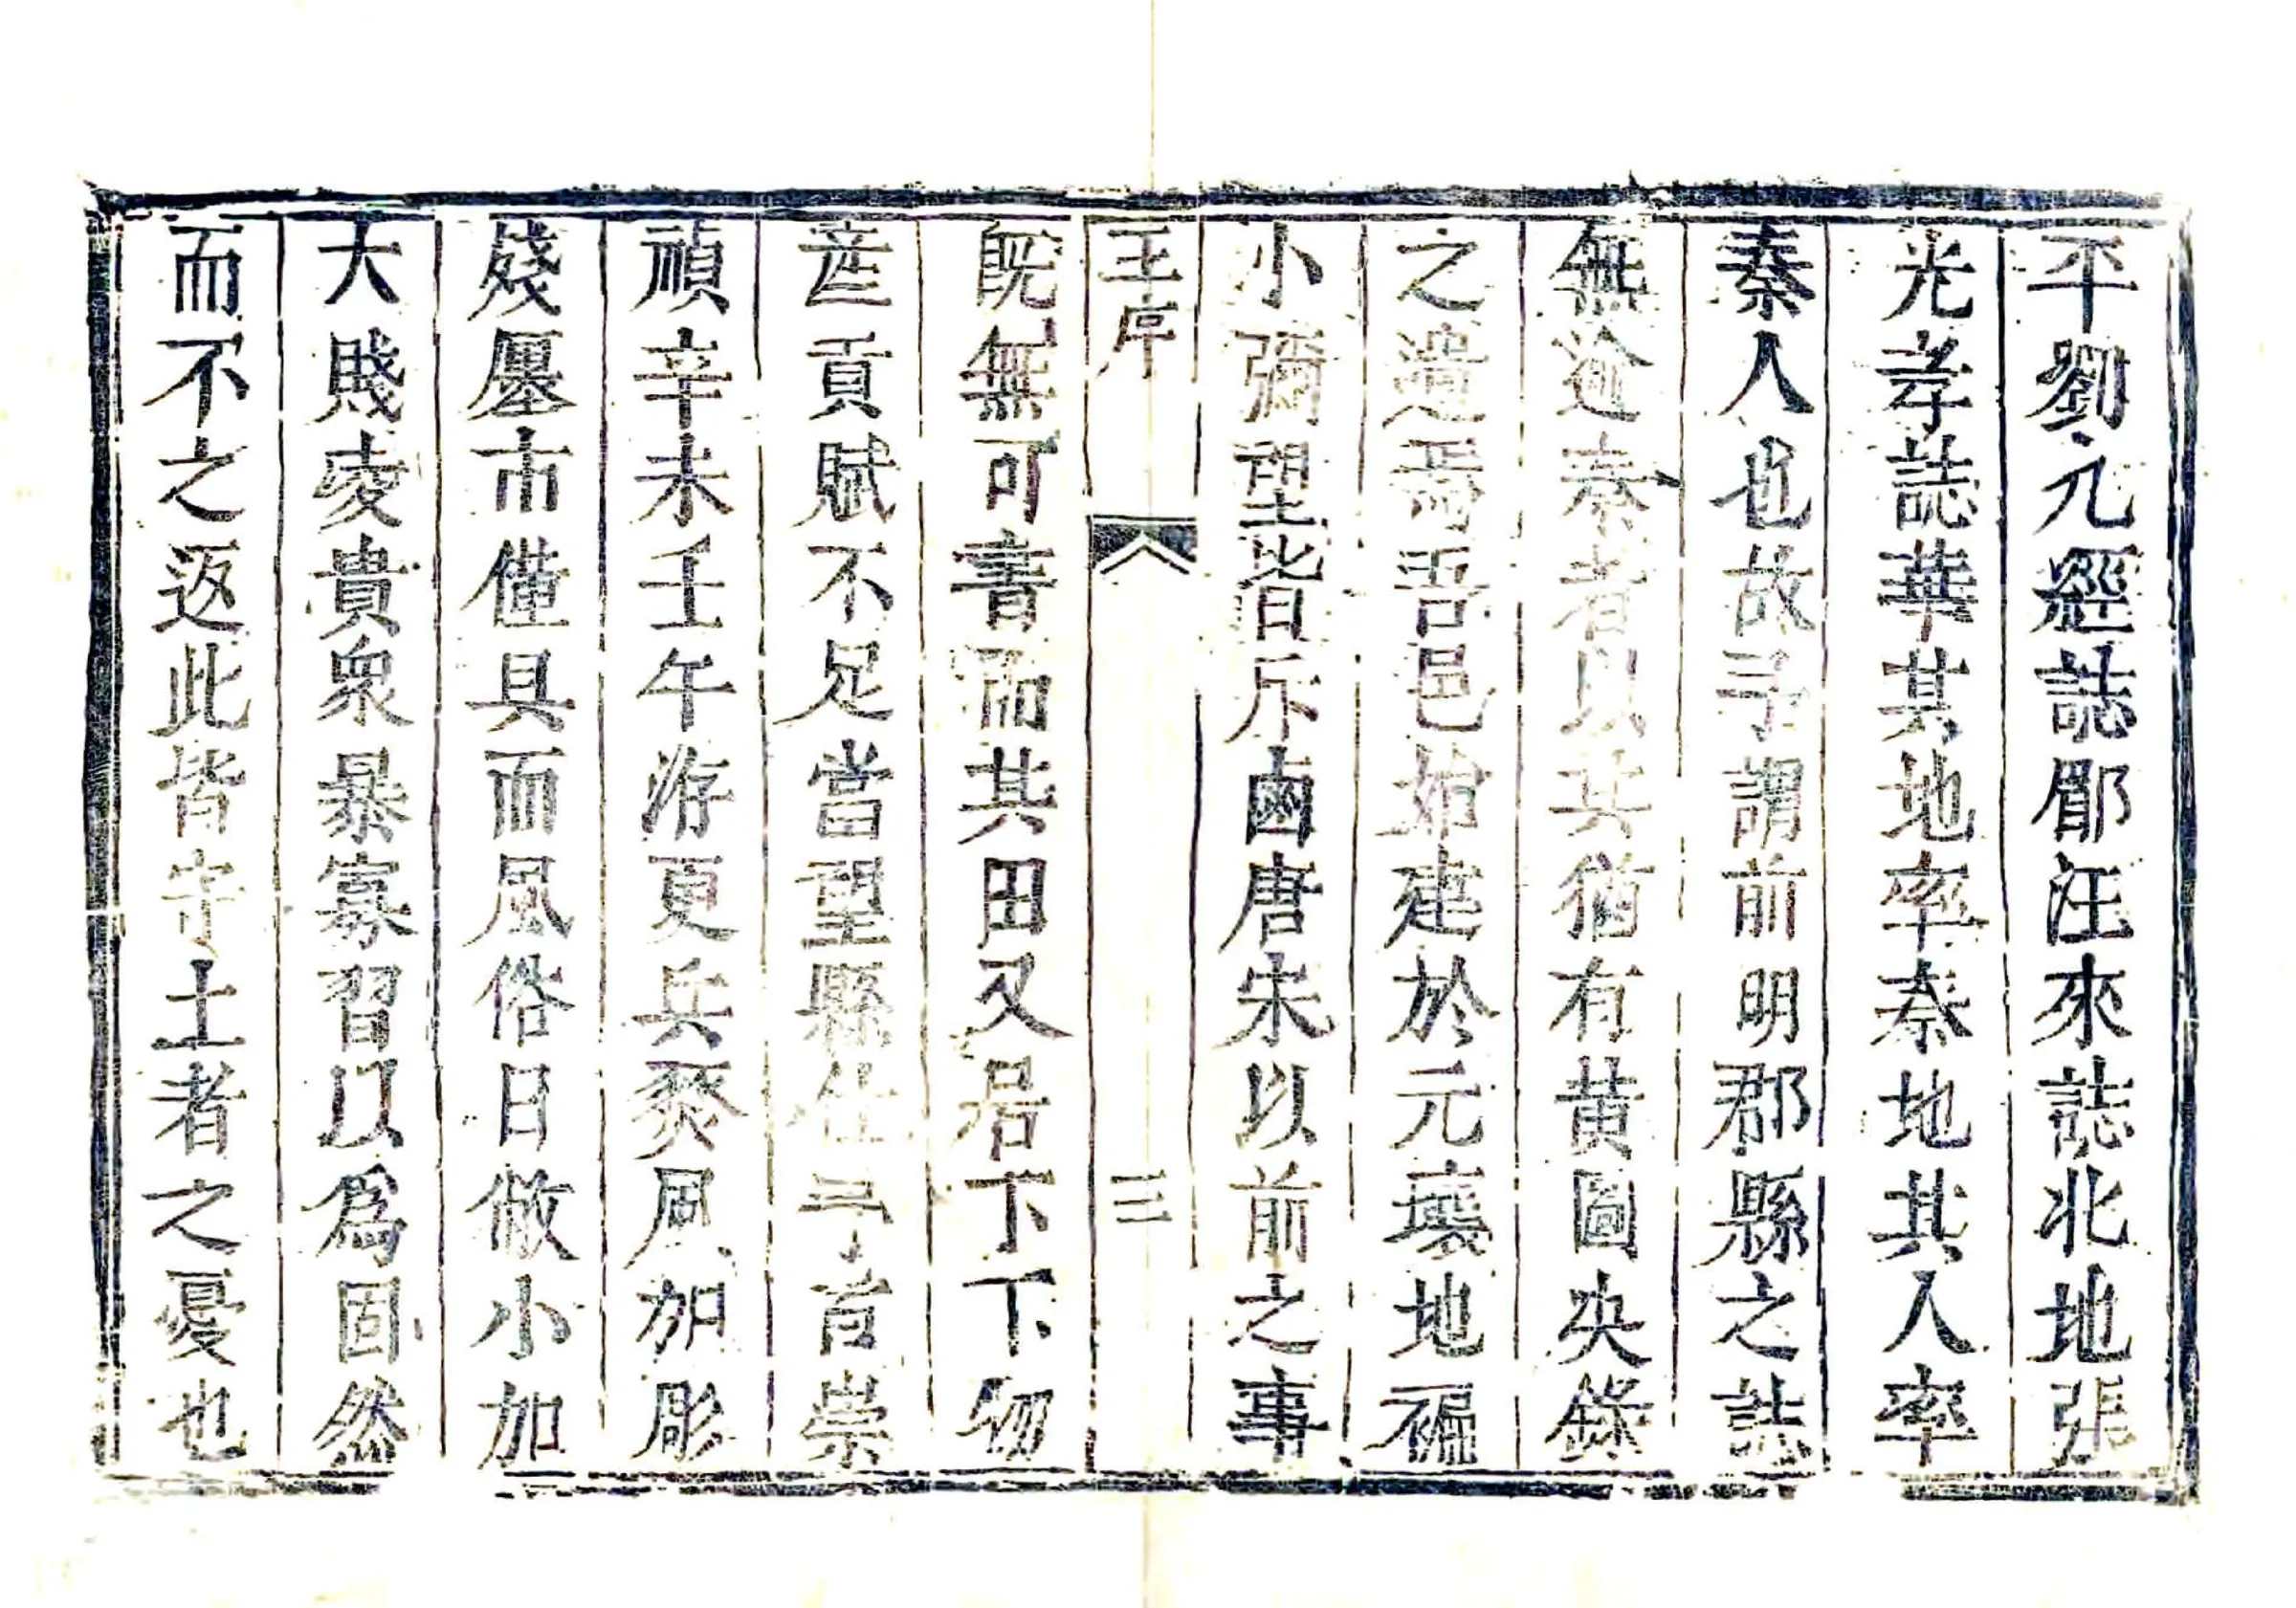 平劉九經誌郿汪來誌北地張
光孝誌華其地率秦地其人率
秦人也故予謂前明郡縣之誌
無逾秦者以其猶有黄圖决錄
之遺焉吾邑始建於元壤地褊
小彌望皆斥鹵唐宋以前之事
王序 三
旣無可書而其田又居下下物
產貢賦不足當望縣崇
禎辛未壬午洊更兵燹風加彫
殘廛市僅具而風俗日傚小加
大賤夌貴衆暴寡習以爲固然
而不之返此皆守土者之憂也